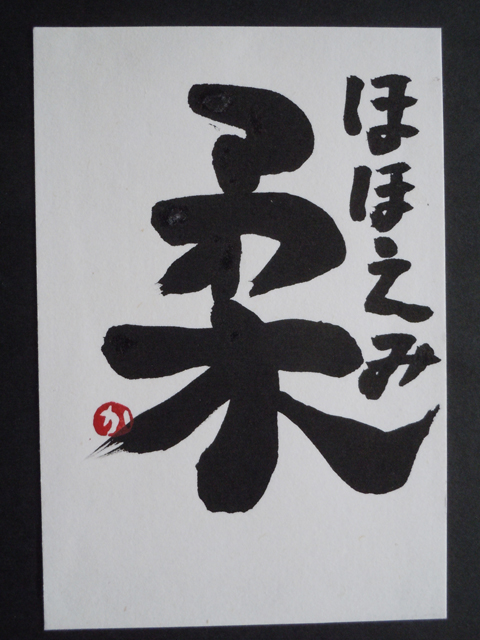 ほほえみ
柔
か